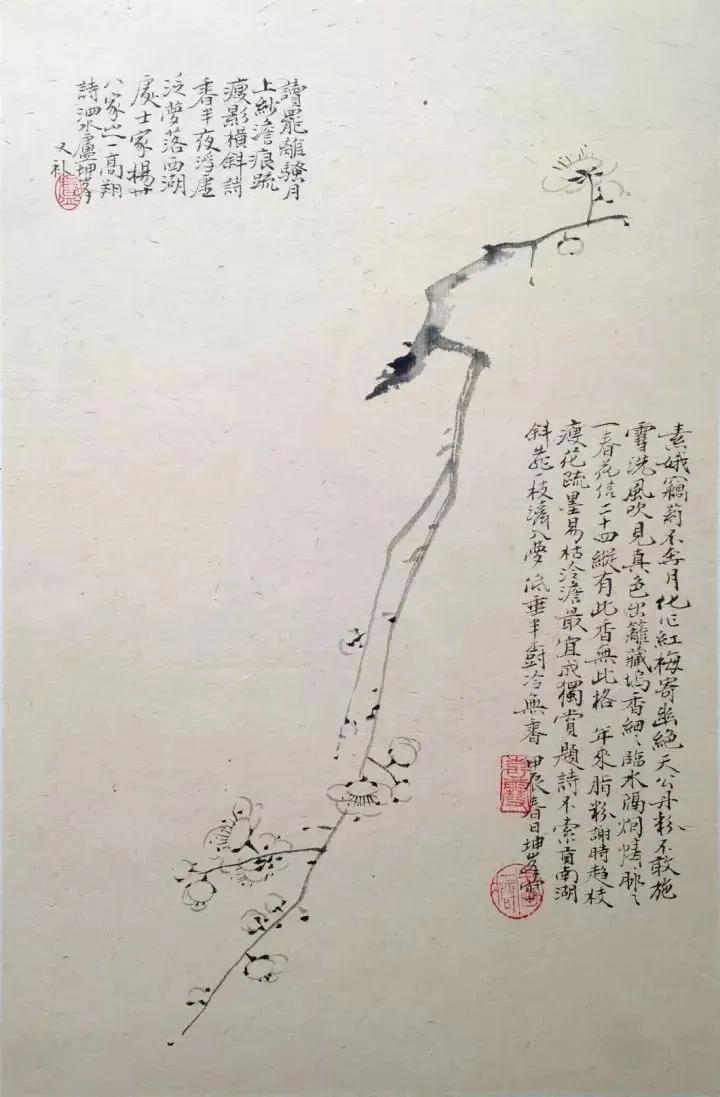 素娥竊葯不奔月化作紅梅寄幽絕天公丹粉不敢施
雪洗風吹見真色出籬藏塢香細〻臨水隔烟情脈〻
一春花信二十四縱有此香無此格 年來脂粉謝時趨枝
瘦花疏墨易枯冷澹最宜成獨賞題詩不索貢南湖
斜 一枝清入夢低垂半樹冷無香 甲辰春日坤峯寫
讀罷離騷月
上紗澹痕疏
瘦影橫斜詩
香半夜浮
泛夢落西湖
處士家楊州
八家之一高翔
詩泗水盧坤峯
又補